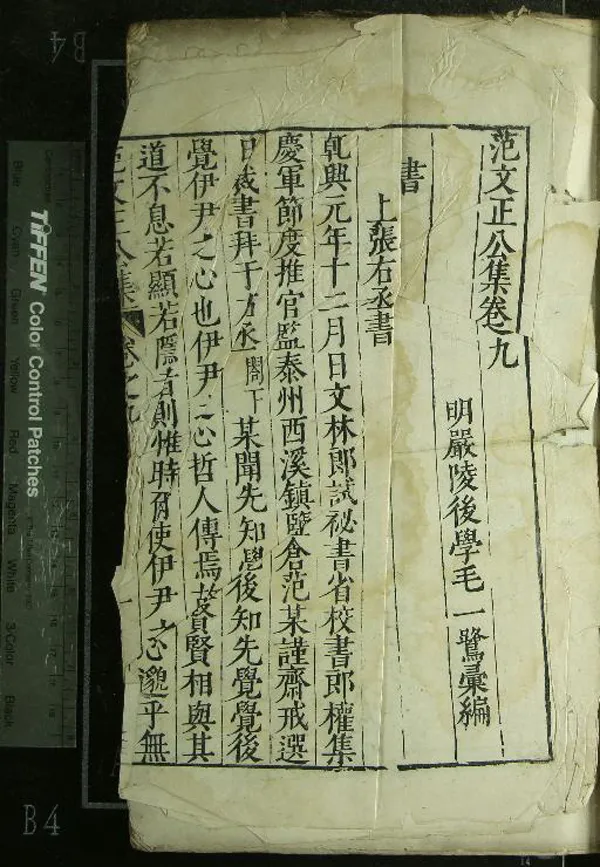 范文正公集卷之九
明嚴陵後學毛一鷺彙編
書
上張右丞書
乹興元年十二月日文林郎試祕書省校書郎權集
慶軍節度推官監泰州西溪鎮鹽倉范某謹齋戒選
日裁書拜于右丞閤下某聞先知覺後知先覺覺後
覺伊尹之心也伊尹之心哲人傳焉故賢賢相與其
道不息若顯若隱者則惟時爾使伊尹之心邈乎無
范文正公集 卷之九
TIFFEN Color Control Patches
Blue
Cyan
Green
Yellow
Red
Magenta
White
3/Color
Black
B4
B4